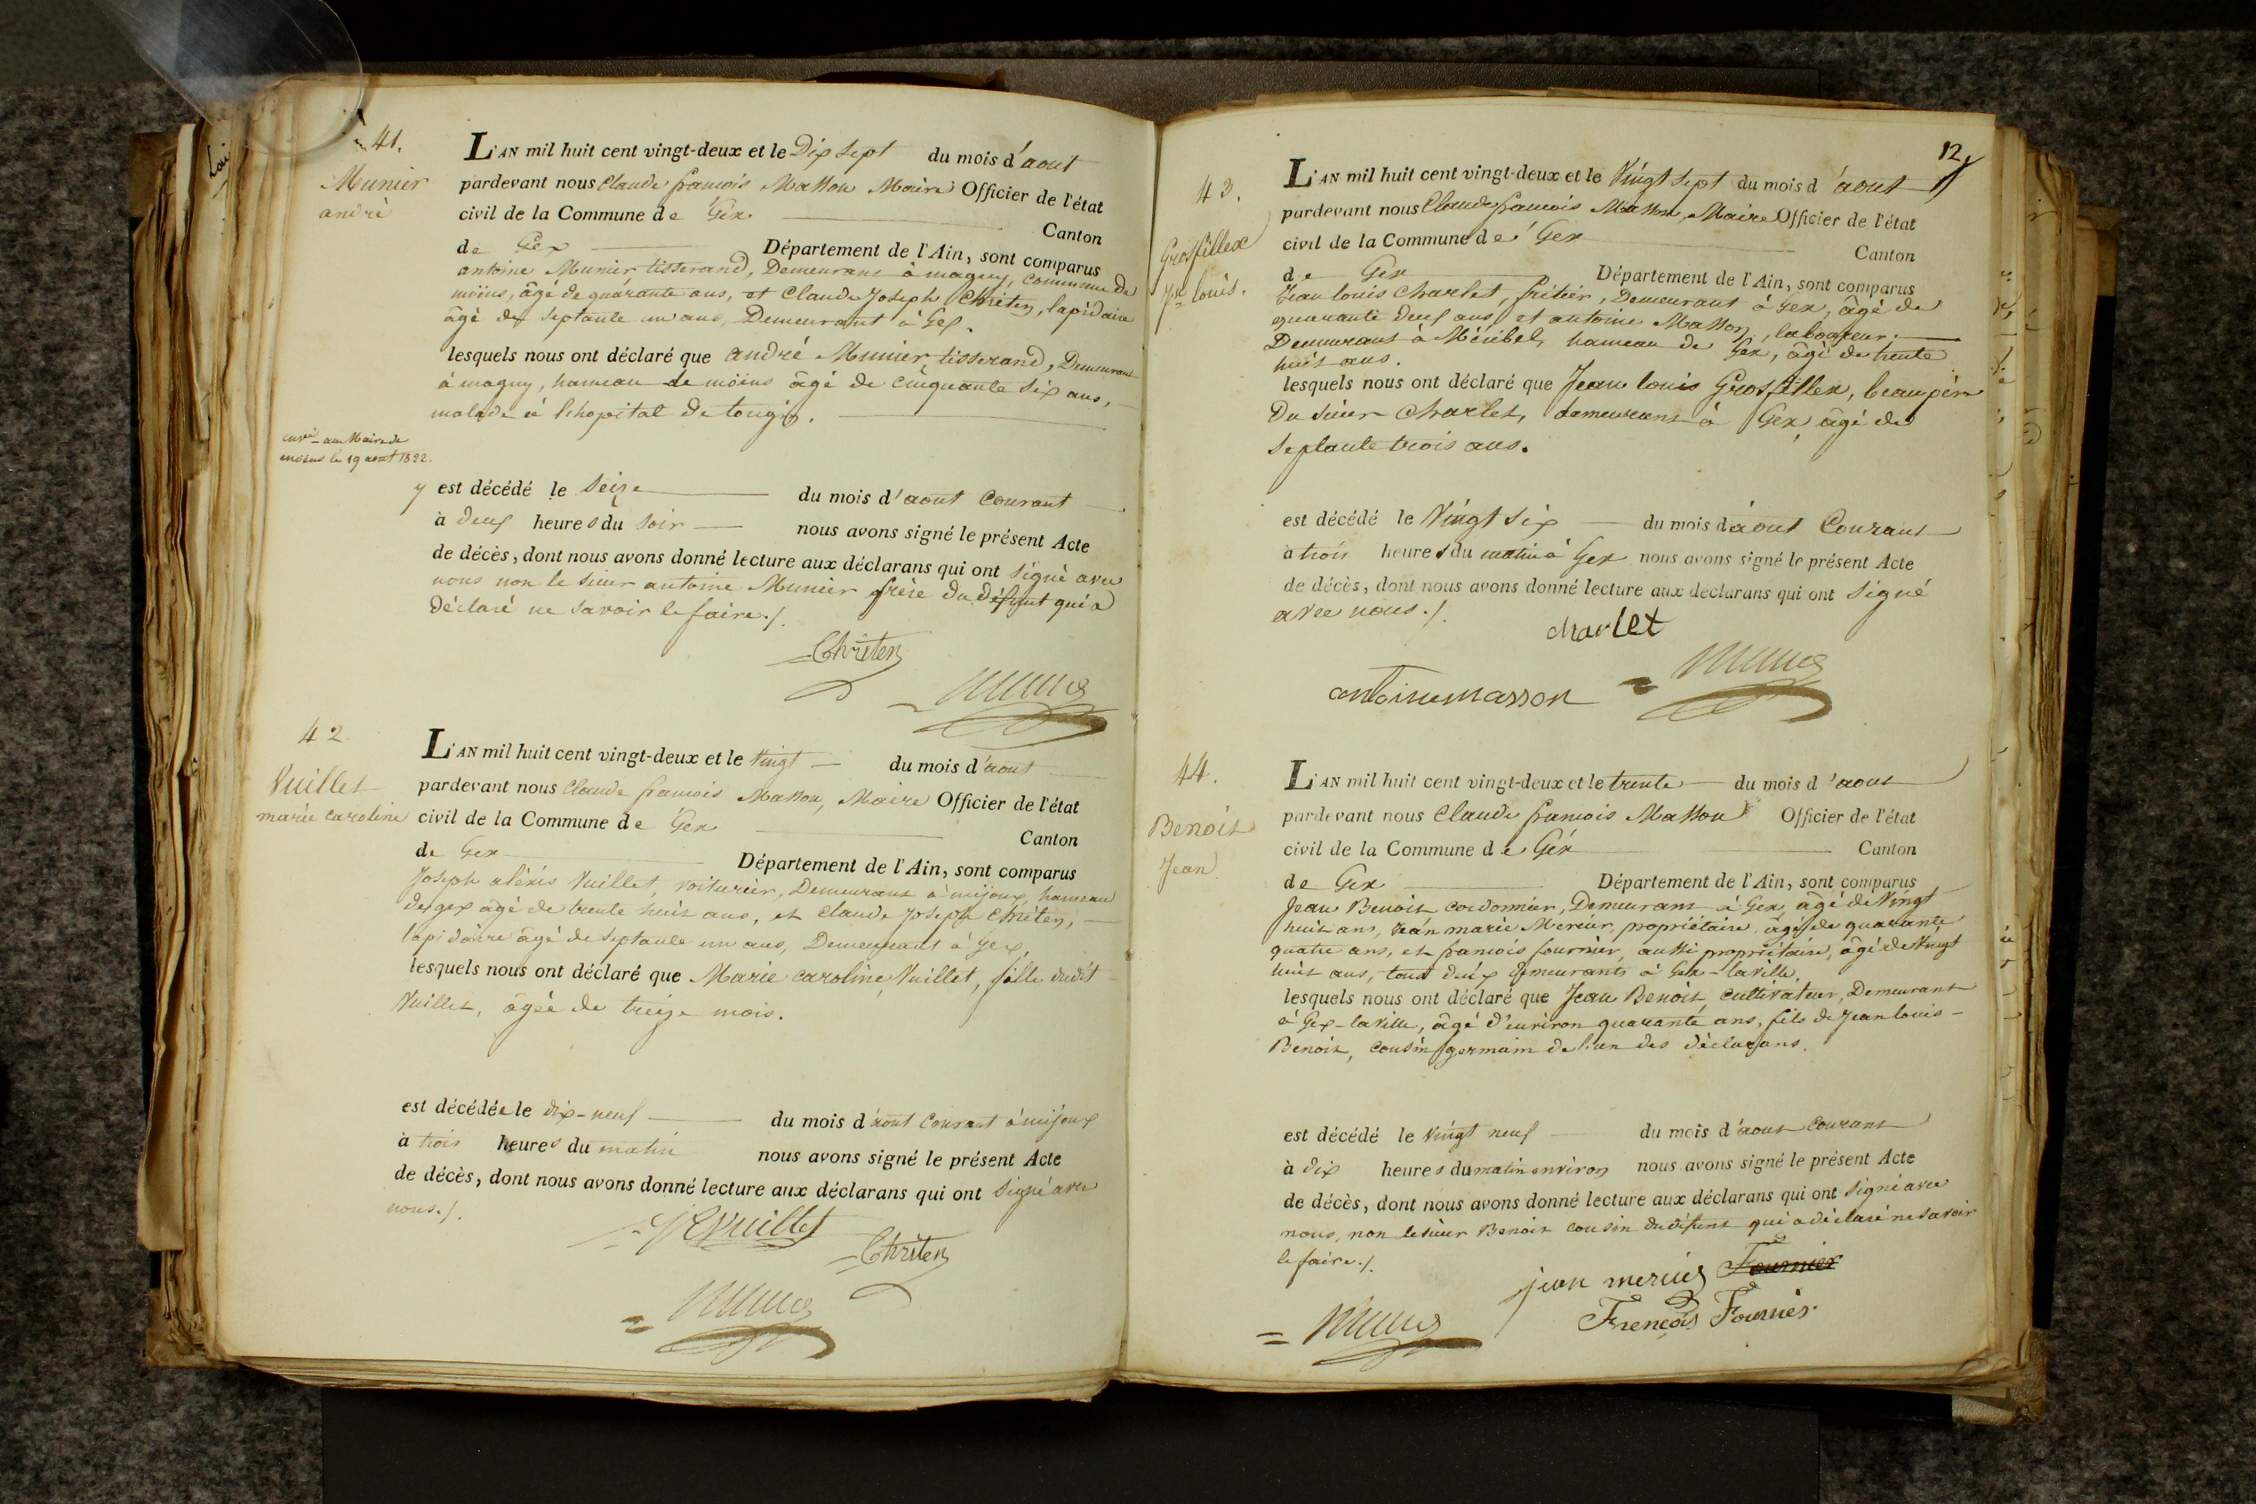 41.
Munier
andré
L'AN mil huit cent vingt-deux et le Dix sept du mois d'aout
pardevant nous Claude francois Masson Maire Officier de l'état
civil de la Commune de Gex
Canton
de Gex Département de l'Ain, sont comparus
antoine Munier tisserand, Demeurant à magny, commune de
moëns, âgé de quarante ans, et Claude Joseph Chrîten, lapidaire
âgé de septante un ans, Demeurant à Gex.
lesquels nous ont déclaré que andré Munier, tisserand, Demeurant
à magny, hameau de moëns âgé de cinquante six ans,
malade à l'hopital de tougin.
envé au Maire de
moëns le 19 aout 1822.
y est décédé le seize du mois d'aout Courant
à deux heures du soir nous avons signé le présent Acte
de décès, dont nous avons donné lecture aux déclarans qui ont signé avec
nous non le sieur antoine Munier frère du défunt qui a
déclaré ne savoir le faire./.
Chrîten
42.
Vuillet
marie caroline
L'AN mil huit cent vingt-deux et le vingt du mois d'aout
pardevant nous Claude francois Masson, Maire Officier de l'état
civil de la Commune de Gex
Canton
de Gex Département de l'Ain, sont comparus
Joseph aléxis Vuillet, voiturier, Demeurant à mijoux, hameau
de gex âgé de trente huit ans, et Claude Joseph Chrîten,
lapidaire âgé de septante un ans, Demeurant à Gex,
lesquels nous ont déclaré que Marie caroline Vuillet, fille dudit
Vuillet, âgée de treize mois.
est décédée le dix-neuf du mois d'aout Courant à mijoux
à trois heures du matin nous avons signé le présent Acte
de décès, dont nous avons donné lecture aux déclarans qui ont signé avec
nous./.
Vuillet
Chrîten
12
43.
Grosfillex
Jn louis.
L'AN mil huit cent vingt-deux et le Vingt sept du mois d'aout
pardevant nous Claude francois Masson, Maire Officier de l'état
civil de la Commune de Gex
Canton
de Gex Département de l'Ain, sont comparus
Jean louis Charlet, fritier, Demeurant à Gex, âgé de
quarante deux ans et antoine Masson, laboureur,
Demeurant à Méribel, hameau de Gex, âgé de trente
huit ans.
lesquels nous ont déclaré que Jean louis Grosfillex, beaupère
du sieur Charlet, demeurant à Gex, âgé de
septante trois ans.
est décédé le Vingt six du mois d'aout Courant
à trois heures du matin à Gex nous avons signé le présent Acte
de décès, dont nous avons donné lecture aux déclarans qui ont signé
avec nous./.
charlet
antoine masson
44.
Benoit
Jean
L'AN mil huit cent vingt-deux et le trente du mois d'aout
pardevant nous Claude francois Masson Officier de l'état
civil de la Commune de Gex
Canton
de Gex Département de l'Ain, sont comparus
Jean Benoit cordonnier, Demeurant à Gex, âgé de Vingt
huit ans, Jean marie Mercier, propriétaire, âgé de quarante
quatre ans, et francois fournier, aussi propriétaire, âgé de Vingt
huit ans, tous deux demeurants à Gex-laville.
lesquels nous ont déclaré que Jean Benoit, cultivateur, Demeurant
à Gex-laville, âgé d'environ quarante ans, fils de Jean louis
Benoit, cousin germain de l'un des déclarans.
est décédé le Vingt neuf du mois d'aout courant
à dix heures du matin environ nous avons signé le présent Acte
de décès, dont nous avons donné lecture aux déclarans qui ont signé avec
nous, non le sieur Benoit cousin du défunt qui a déclaré ne savoir
le faire./.
jean mercier Fournier
Frençois Fournier